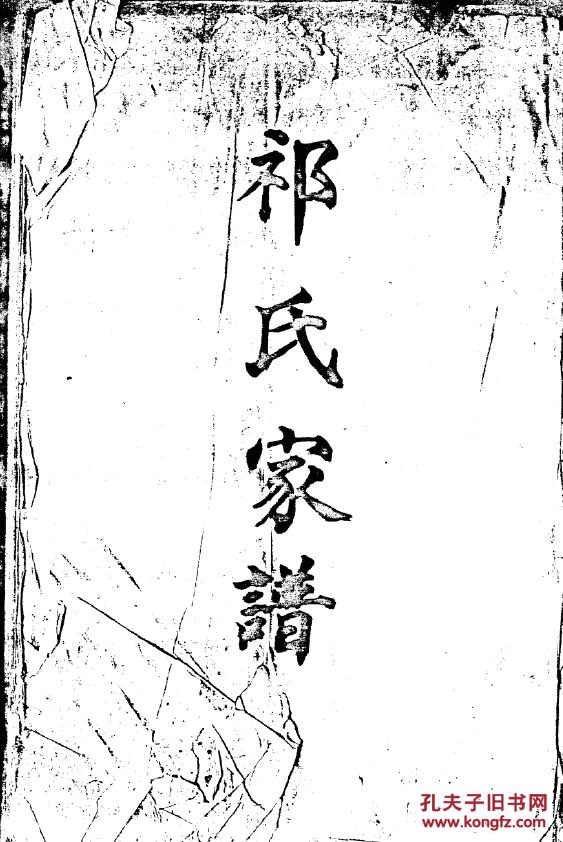 祁氏家譜
孔夫子旧书网
www.kongfz.com